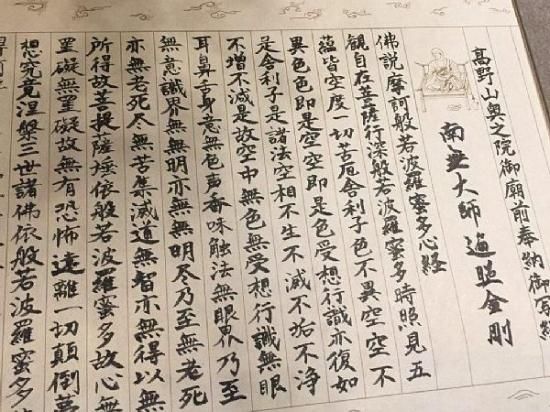 高野山奥之院御廟前奉納御写経
南無大師遍照金剛
佛説摩訶般若波羅蜜多心経
観自在菩薩行深般若波羅蜜多時照見五
蘊皆空度一切苦厄舎利子色不異空空不
異色色即是空空即是色受想行識亦復如
是舎利子是諸法空相不生不滅不垢不浄
不増不減是故空中無色無受想行識無眼
耳鼻舌身意無色声香味触法無眼界乃至
無意識界無無明亦無無明尽乃至無老死
亦無老死尽無苦集滅道無智亦無得以無
所得故菩提薩埵依般若波羅蜜多故心無
罣礙無罣礙故無有恐怖遠離一切顛倒夢
想究竟涅槃三世諸佛依般若波羅蜜多故